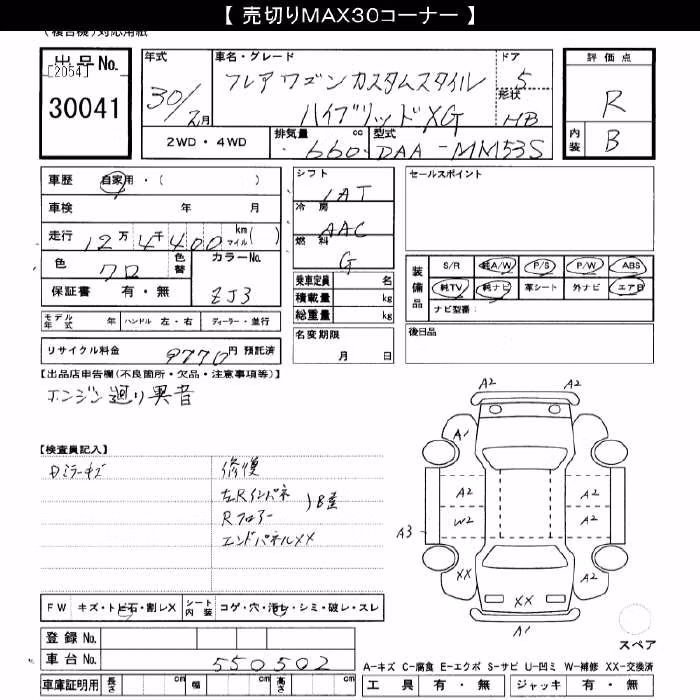 【 売切りMAX30コーナー 】
(複合機)対応用紙
出品No. [2054] 30041
年式 30/2月
車名・グレード フレアワゴンカスタムスタイル ハイブリッドXG
ドア 5
形状 HB
2WD・4WD
排気量 660 cc
型式 DAA-MM53S
評価点 R
内装 B
車歴 自家用・( )
車検 年 月
走行 12万4千400 km マイル( )
色 クロ 色替
カラーNo. ZJ3
保証書 有・無
モデル年式 年 ハンドル 左・右 ディーラー・並行
リサイクル料金 9770円 預託済
シフト IAT
冷房 AAC
燃料 G
乗車定員 名
積載量 kg
総重量 kg
名変期限 月 日
セールスポイント
装備品 S/R 純A/W P/S P/W ABS
純TV 純ナビ 革シート 外ナビ エアB
ナビ型番:
後日品
【出品店申告欄(不良箇所・欠品・注意事項等)】
エンジン廻り異音
【検査員記入】
Dミラーキズ
修復
左Rインパネ
Rフロアー
)B歪
エンドパネルXX
FW キズ・トビ石・割レX シート内装 コゲ・穴・汚レ・シミ・破レ・スレ
登録No.
車台No. 550502
車庫証明用 長さ cm 幅 cm 高さ cm
A2 A2
A1
A2
A2 A2
W2 A2
A3
XX A2
XX
A1
スペア
A-キズ C-腐食 E-エクボ S-サビ U-凹ミ W-補修 XX-交換済
工具 有・無 ジャッキ 有・無